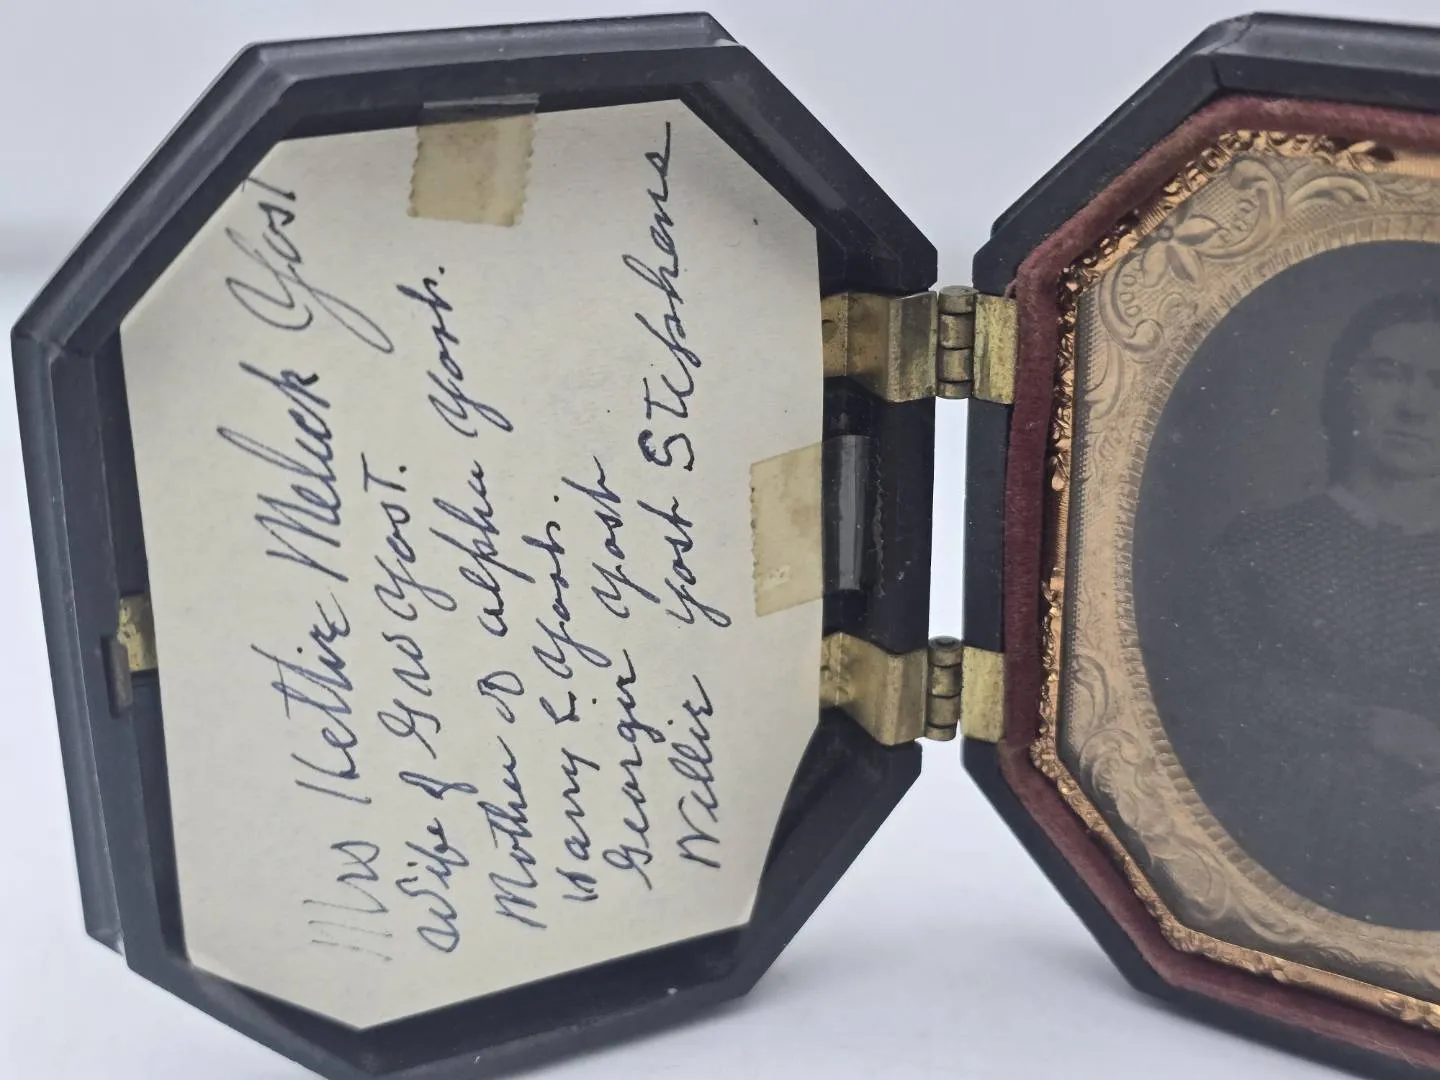 Mrs Kettire Melick Yost
Wife of Geo Yost.
Mother of Alpha Yost.
Harry L. Yost.
George Yost
Nellie Yost Stephens